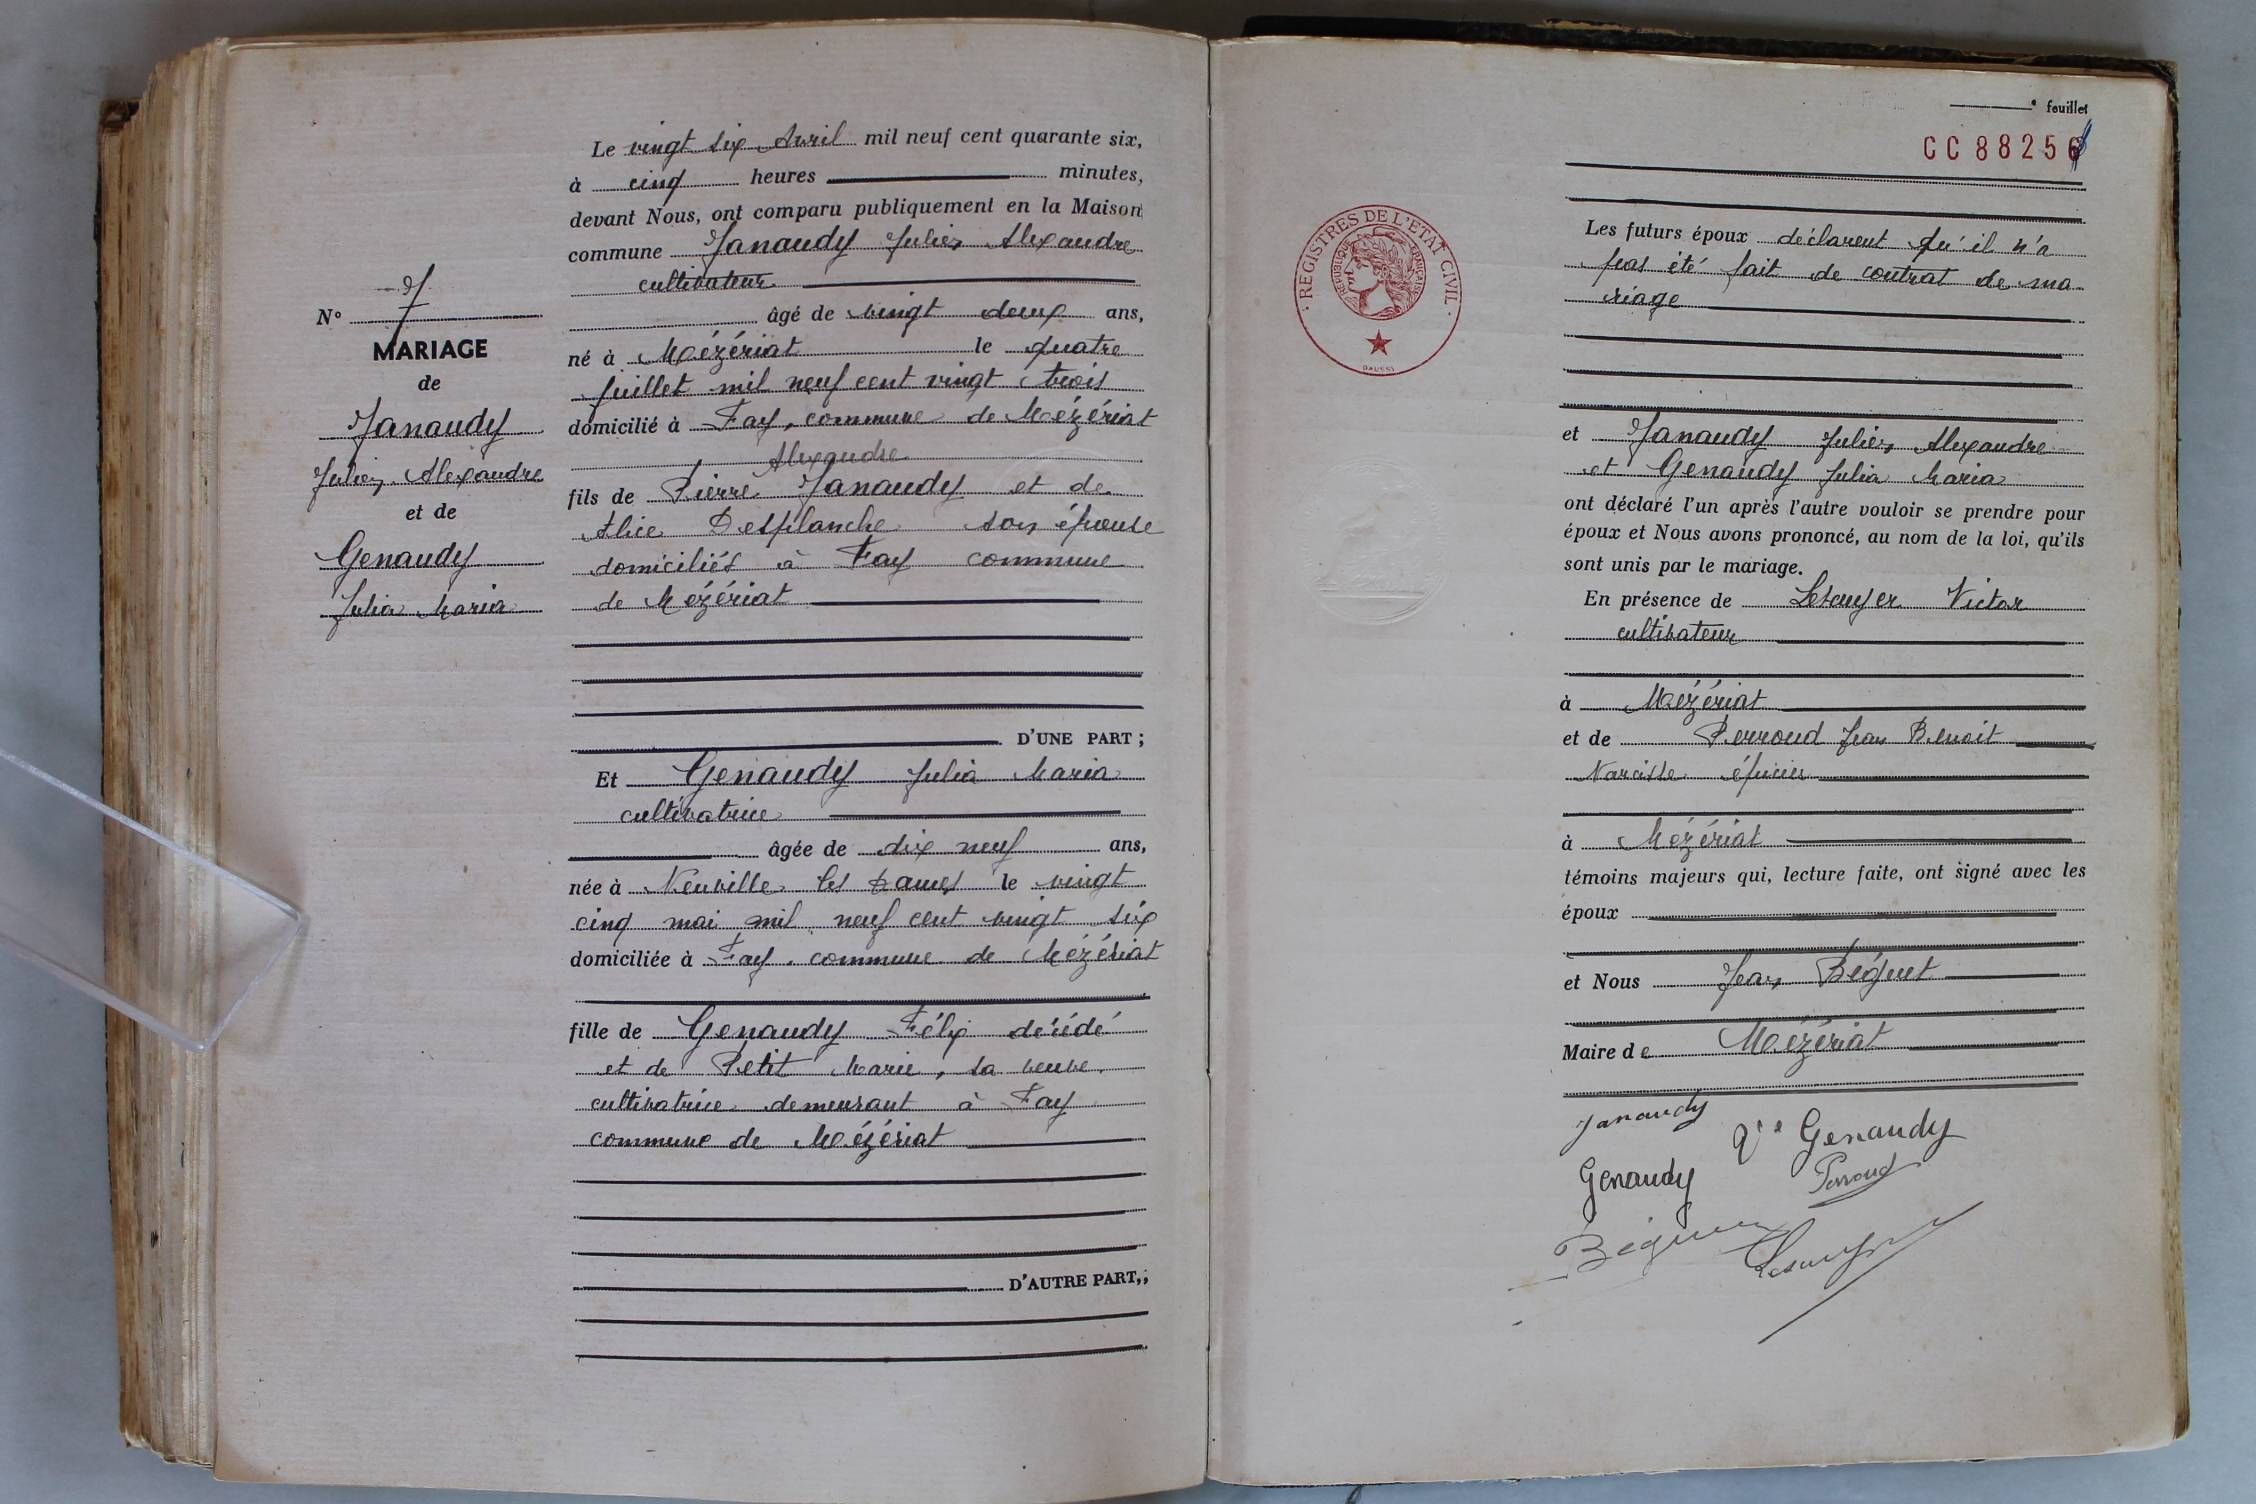 N° 7
MARIAGE
de
Janaudy
Julien Alexandre
et de
Genaudy
Julia Maria
Le vingt six Avril mil neuf cent quarante six,
à cinq heures minutes,
devant Nous, ont comparu publiquement en la Maison
commune Janaudy Julien Alexandre
cultivateur
âgé de vingt deux ans,
né à Mézériat le quatre
juillet mil neuf cent vingt trois
domicilié à Fay, commune de Mézériat
Alexandre
fils de Pierre Janaudy et de
Alice Desplanche son épouse
domiciliés à Fay commune
de Mézériat
D'UNE PART ;
Et Genaudy Julia Maria
cultivatrice
âgée de dix neuf ans,
née à Neuville les Dames le vingt
cinq mai mil neuf cent vingt six
domiciliée à Fay, commune de Mézériat
fille de Genaudy Félix décédé
et de Petit Marie, sa veuve,
cultivatrice demeurant à Fay
commune de Mézériat
D'AUTRE PART,;
feuillet
CC 88256
REGISTRES DE L'ÉTAT CIVIL
REPUBLIQUE FRANÇAISE
Les futurs époux déclarent qu'il n'a
pas été fait de contrat de ma
riage
et Janaudy Julien Alexandre
et Genaudy Julia Maria
ont déclaré l'un après l'autre vouloir se prendre pour
époux et Nous avons prononcé, au nom de la loi, qu'ils
sont unis par le mariage.
En présence de Lesauyer Victor
cultivateur
à Mézériat
et de Perroud Jean Benoit
Narcisse épicier
à Mézériat
témoins majeurs qui, lecture faite, ont signé avec les
époux
et Nous Jean Béguet
Maire de Mézériat
Janaudy
Vve Genaudy
Genaudy
Perroud